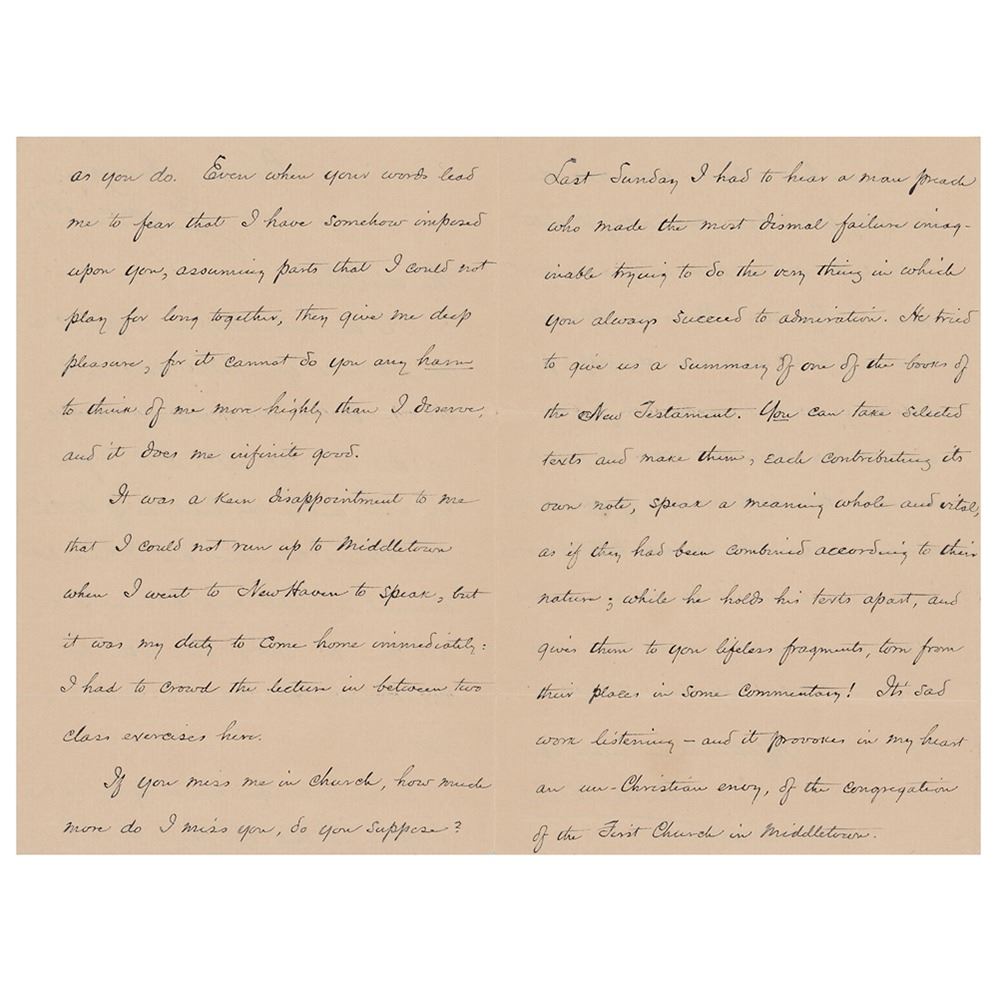 as you do. Even when your words lead
me to fear that I have somehow imposed
upon you, assuming parts that I could not
play for long together, they give me deep
pleasure, for it cannot do you any harm
to think of me more highly than I deserve,
and it does me infinite good.
It was a keen disappointment to me
that I could not run up to Middletown
when I went to New Haven to speak, but
it was my duty to come home immediately:
I had to crowd the lecture in between two
class exercises here.
If you miss me in church, how much
more do I miss you, do you suppose?
Last Sunday I had to hear a man preach
who made the most dismal failure imag-
inable trying to do the very thing in which
you always succeed to admiration. He tried
to give us a summary of one of the books of
the New Testament. You can take selected
texts and make them, each contributing its
own note, speak a meaning whole and vital,
as if they had been combined according to their
nature; while he holds his texts apart, and
gives them to you lifeless fragments, torn from
their places in some commentary! It's sad
work listening – and it provokes in my heart
an un-Christian envy, of the congregation
of the First Church in Middletown.